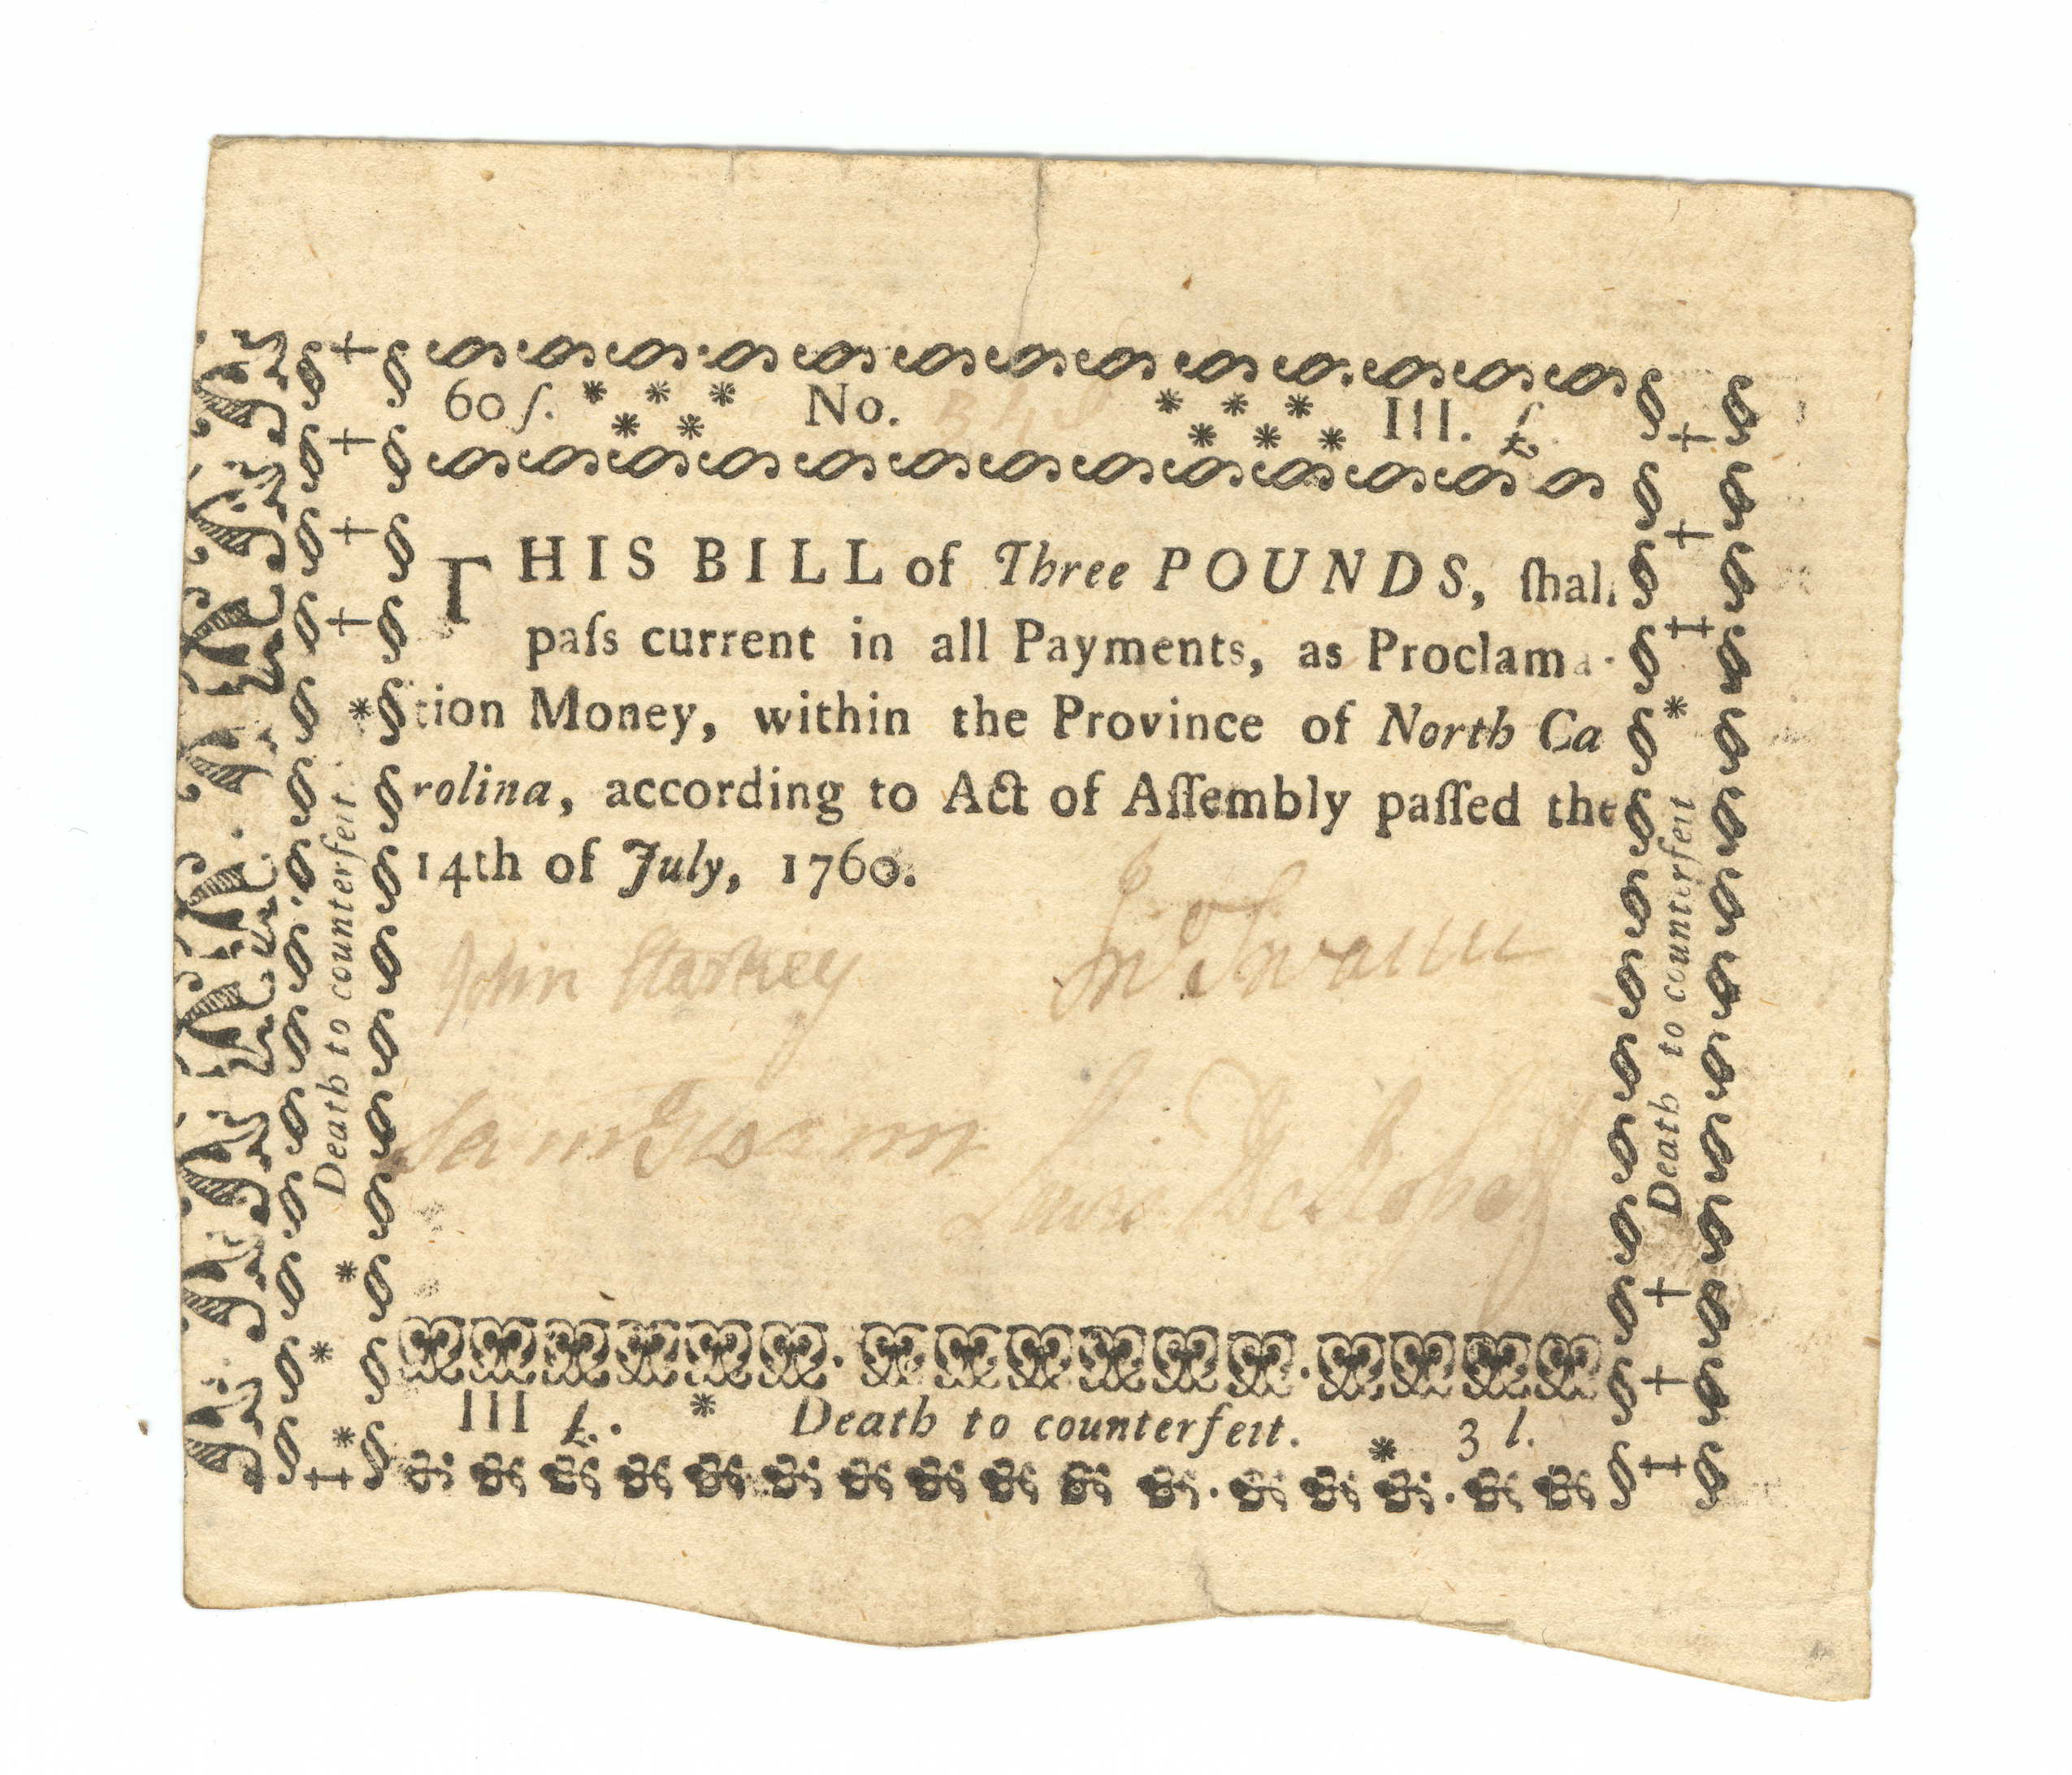 60 ſ. * * * * * No. * * * * * * III. £.
THIS BILL of Three POUNDS, ſhall
paſs current in all Payments, as Proclama-
tion Money, within the Province of North Ca
rolina, according to Act of Aſſembly paſſed the
14th of July, 1760.
John Starkey Jno Swann
Sam Swann Lewis DeRosset
III £. * Death to counterfeit. * 3 l.
Death to counterfeit
Death to counterfeit